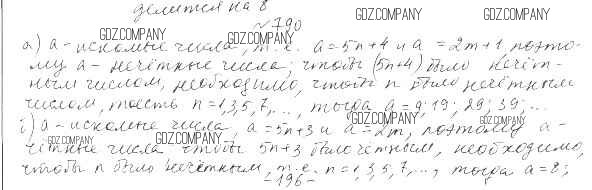 делится на 8
GDZ.COMPANY GDZ.COMPANY
№ 790
GDZ.COMPANY GDZ.COMPANY
а) a - искомые числа, т.е. a = 5n+4 и a = 2m+1, поэто-
му a - нечётные числа; чтобы (5n+4) было нечёт-
ным числом, необходимо, чтобы n было нечётным
числом, то есть n = 1, 3, 5, 7, ..., тогда a = 9; 19; 29; 39; ...
GDZ.COMPANY GDZ.COMPANY
a - искомые числа, a = 5n+3 и a = 2m, поэтому a -
GDZ.COMPANY GDZ.COMPANY
чётные числа чтобы 5n+3 было чётным, необходимо,
чтобы n было нечётным, т.е. n = 1, 3, 5, 7, ..., тогда a = 8;
-196-